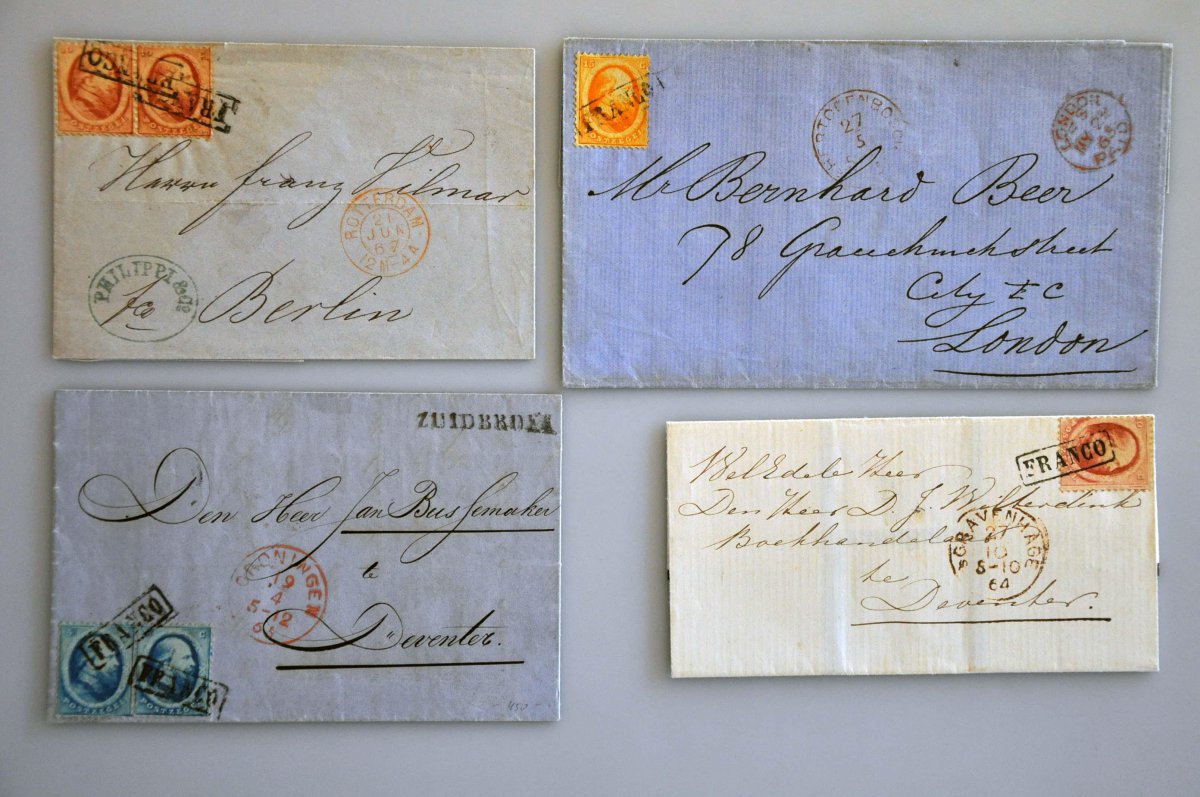 FRANCO
FRANCO
Herrn Franz Vilmar
ROTTERDAM
21
JUN
67
12M-4A
PHILIPPI & Co
fco Berlin
15
FRANCO
27
5
LONDON
Mr Bernhard Beer
78 Gracechurchstreet
City E C
London
ZUIDBROEK
Den Heer Jan Bussemaker
GRONINGEN
19
4
5-12
te
Deventer.
FRANCO
FRANCO
POSTZEGEL
POSTZEGEL
450
FRANCO
WelEdele Heer
Den Heer D. J. Wilterdink
Boekhandelaar
'SGRAVENHAGE
27
10
8-10
64
te
Deventer.